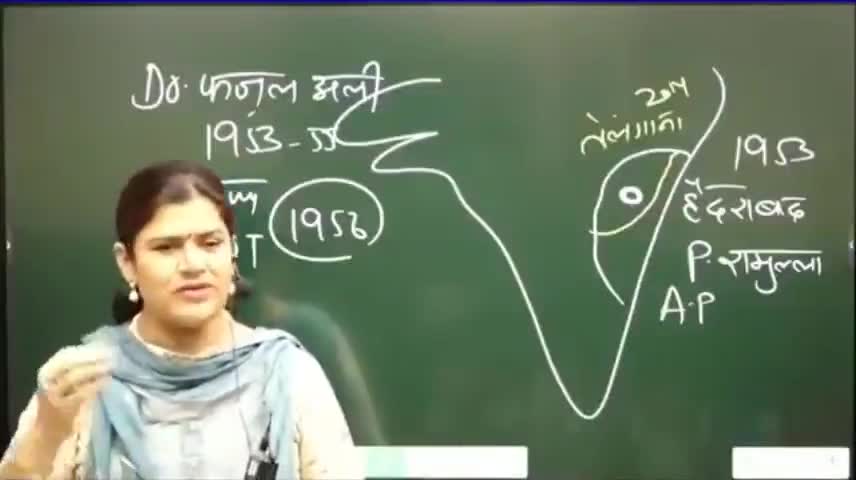 Dr. फजल अली
1953-55
1956
T
तेलंगाना
1953
हैदराबाद
P. रामुल्ला
A.P